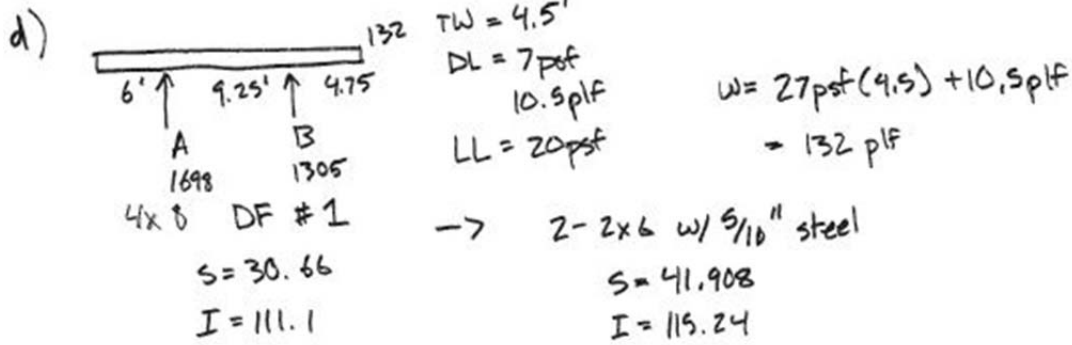 d)
132
6' 9.25' 4.75
A B
1698 1305
4x8 DF #1
S = 30.66
I = 111.1
TW = 4.5'
DL = 7psf
10.5plf
LL = 20psf
W = 27psf(4.5) + 10.5plf
= 132 plf
-> 2- 2x6 w/ 5/16" steel
S = 41.908
I = 115.24